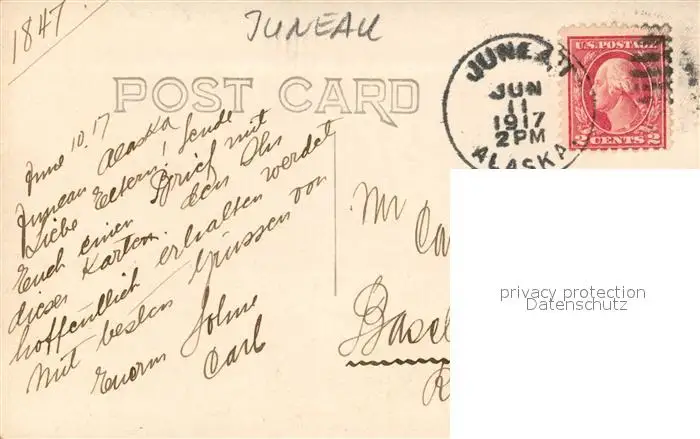 1847
JUNEAU
POST CARD
JUNEAU
JUN
11
1917
2 PM
ALASKA
U.S. POSTAGE
2 CENTS 2
June 10. 17
Juneau Alaska
Liebe Eltern! Sende
Euch einen Brief mit
dieser Karten. den Ihr
hoffentlich erhalten werdet
Mit besten Grüssen von
Euerm Sohne
Carl
Mr
Ca
Basel
privacy protection
Datenschutz